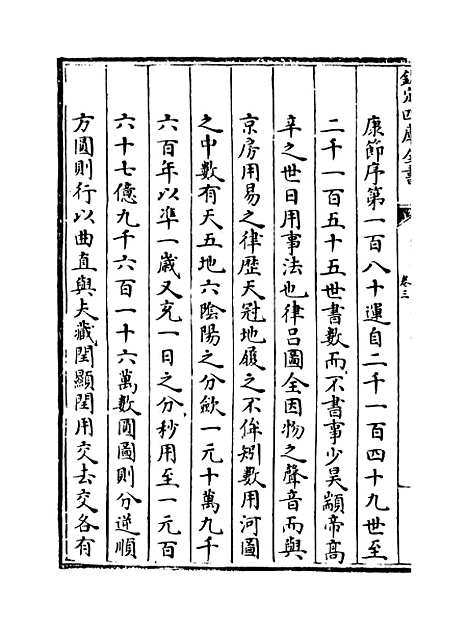 欽定四庫全書
卷三
康節序第一百八十運自二千一百四十九世至
二千一百五十五世書數而不書事少昊顓帝髙
辛之世日用事法也律吕圖全因物之聲音而與
京房用易之律歴天冠地履之不侔矧數用河圖
之中數有天五地六隂陽之分歛一元十萬九千
六百年以凖一歳又充一日之分秒用至一元百
六十七億九千六百一十六萬數圓圖則分逆順
方圖則行以曲直與夫藏閏顯閏用交去交各有